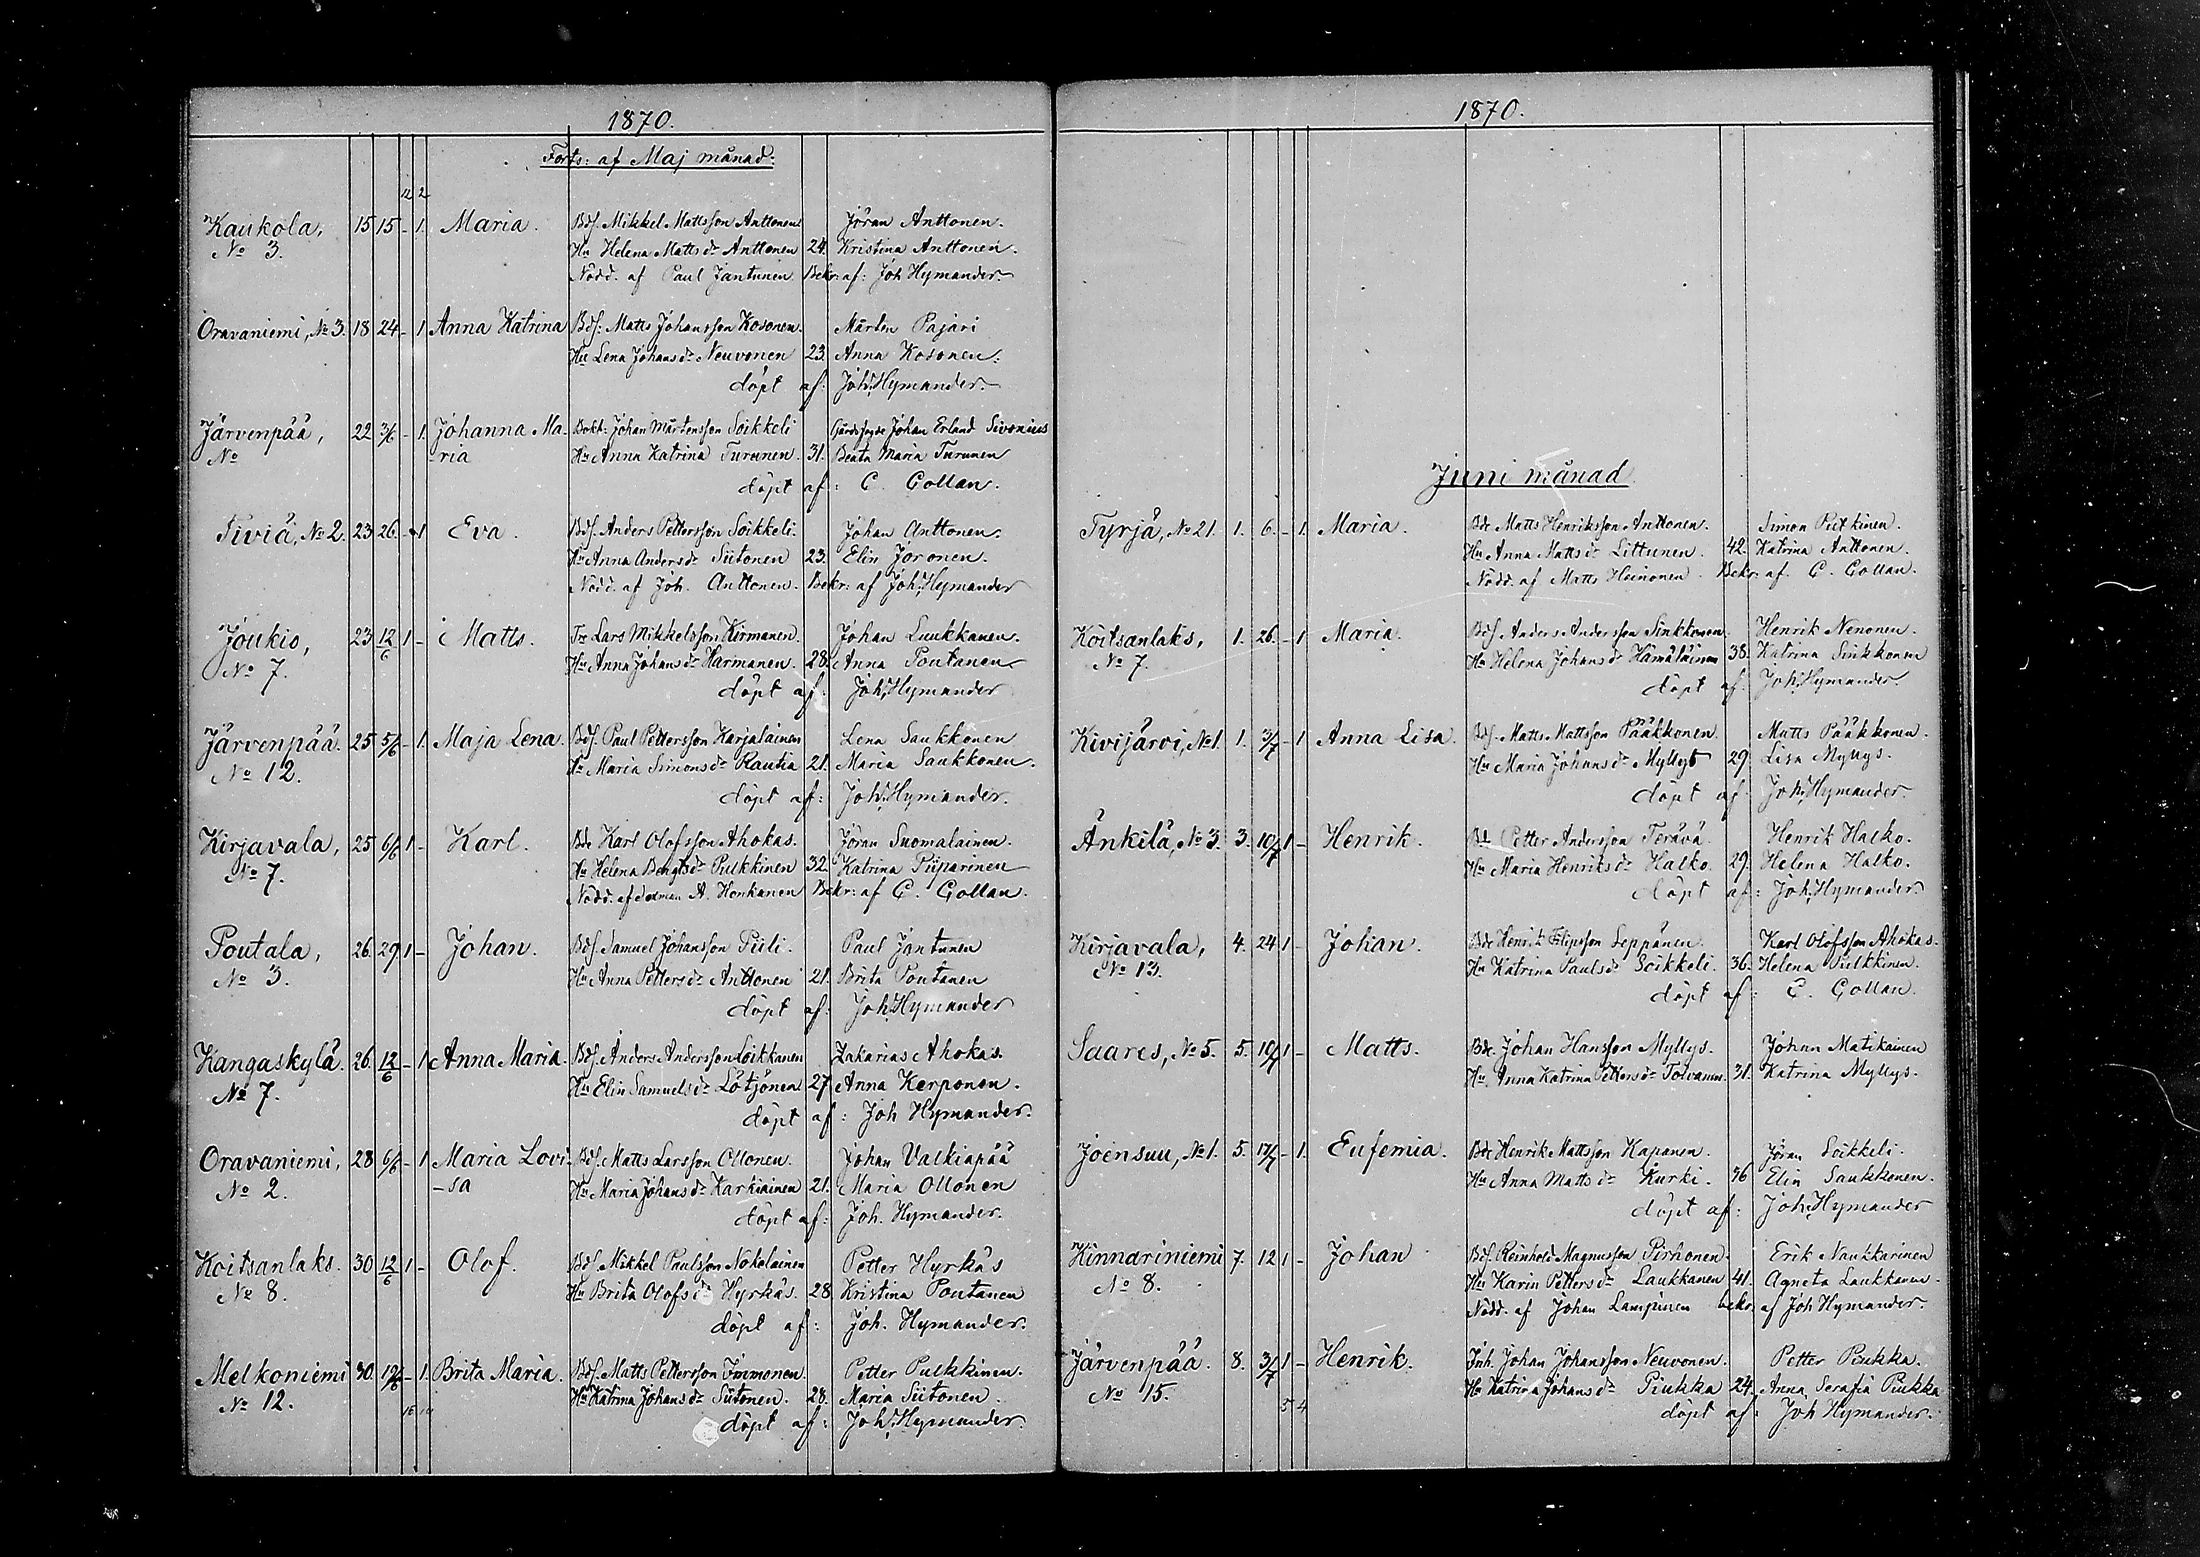 1870.
Forts: af Maj månad.
12 2
Kaukola, 15 15 - 1. Maria. Bds. Mikkel Mattsson Anttonen Jöran Anttonen.
No 3. Hu Helena Mattsdr Anttonen 24. Kristina Anttonen.
Nödd. af Paul Jantunen Bekr: af: Joh Hymander
Oravaniemi, No 3. 18 24 - 1 Anna Katrina Bds: Matts Johansson Kosonen. Mårten Pajari
Hu Lena Johansdr Neuvonen 23. Anna Kosonen.
döpt af: Joh. Hymander.
Järvenpää, 22 3/6 - 1. Johanna Ma- Bokh: Johan Mårtensson Soikkeli Johan Erland Sivonius
No -ria Hu Anna Katrina Turunen. 31. Beata Maria Turunen
döpt af: C. Gollan.
Tiviä, No 2. 23 26. - 1 Eva. Bds. Anders Pettersson Soikkeli. Johan Anttonen.
Hu Anna Andersdr Siitonen 23. Elin Joronen.
Nödd. af Joh. Anttonen. Bekr: af Joh. Hymander
Joukio, 23 12/6 1 - Matts. Lars Mikkelsson Kirmanen. Johan Luukkanen.
No 7. Hu Anna Johansdr Harmanen. 28. Anna Poutanen
döpt af. Joh. Hymander
Järvenpää. 25 5/6 - 1. Maja Lena. Bds. Paul Pettersson Karjalainen Lena Saukkonen
No 12. Hu Maria Simonsdr Rautia 21. Maria Saukkonen.
döpt af: Joh. Hymander.
Kirjavala, 25 6/6 1 - Karl. Bde Karl Olofsson Ahokas. Jöran Suomalainen.
No 7. Hu Helena Bengtsdr Pulkkinen 32. Katrina Piiparinen
Nödd. af A. Honkanen Bekr: af C. Gollan.
Poutala, 26. 29. 1 - Johan. Bds. Samuel Johansson Piili. Paul Jantunen
No 3. Hu Anna Pettersdr Anttonen 21. Brita Poutanen
döpt af: Joh. Hymander
Kangaskylä. 26. 12/6 - 1 Anna Maria. Bds. Anders Andersson Loikkanen Zakarias Ahokas.
No 7. Hu Elin Samuelsdr Lötjönen 27 Anna Kerponen.
döpt af: Joh Hymander.
Oravaniemi, 28 6/6 - 1 Maria Lovi- Bds. Matts Larsson Ollonen. Johan Valkiapää
No 2. -sa Hu Maria Johansdr Karkiainen 21. Maria Ollonen
döpt af: Joh. Hymander.
Koitsanlaks. 30 12/6 1 - Olof. Bds. Mikkel Paulsson Nokelainen Petter Hyrkäs
No 8. Hu Brita Olofsdr Hyrkäs. 28 Kristina Poutanen
döpt af: Joh. Hymander.
Melkoniemi 30. 12/6 - 1. Brita Maria. Bds. Matts Pettersson Immonen. Petter Pulkkinen.
No 12. Hu Katrina Johansdr Siitonen. 28. Maria Siitonen.
döpt af: Joh. Hymander
1870.
Juni månad
Tyrjä, No 21. 1. 6. - 1. Maria. Bde Matts Henriksson Anttonen. Simon Putkinen.
Hu Anna Mattsdr Littunen. 42. Katrina Anttonen.
Nödd. af Matts Heinonen. Bekr: af. C. Gollan.
Koitsanlaks, 1. 26. - 1 Maria. Bds Anders Andersson Sinkkonen. Henrik Nenonen.
No 7. Hu Helena Johansdr Hämäläinen 38. Katrina Sinkkonen
döpt af: Joh. Hymander.
Kivijärvi, No 1. 1. 3/7 - 1 Anna Lisa. Bds. Matts Mattsson Pääkkonen. Matts Pääkkonen.
Hu Maria Johansdr Myllys 29 Lisa Myllys.
döpt af. Joh. Hymander.
Änkilä, No 3. 3. 10/7 1 - Henrik. Bd. Petter Andersson Terävä. Henrik Halko.
Hu Maria Henriksdr Halko. 29. Helena Halko.
döpt af: Joh. Hymander.
Kirjavala, 4. 24 1 - Johan. Bde Henrik Filipsson Seppänen. Karl Olofsson Ahokas.
No 13. Hu Katrina Paulsdr Soikkeli. 36. Helena Pulkkinen.
döpt af: C. Gollan.
Saares, No 5. 5. 10/7 1 - Matts. Bde. Johan Hansson Myllys. Johan Matikainen
Hu. Anna Katrina Pettersdr Tolvanen. 31. Katrina Myllys.
Joensuu, No 1. 5. 17/7 - 1. Eufemia. Bde Henrik Mattsson Kapanen. Jöran Soikkeli.
Hu Anna Mattsdr Kurki. 36 Elin Saukkonen.
döpt af: Joh. Hymander
Kinnariniemi 7. 12 1 - Johan Bds. Reinhold Magnusson Pirhonen. Erik Naukkarinen
No 8. Hu Karin Pettersdr Laukkanen 41. Agneta Laukkanen.
Nödd. af Johan Lampinen bekr. af Joh Hymander.
Järvenpää. 8. 3/7 1 - Henrik. Inh. Johan Johansson Neuvonen. Petter Piukka.
No 15. Hu Katrina Johansdr Piukka 24. Anna Serafia Piukka
5 4 döpt af: Joh Hymander.